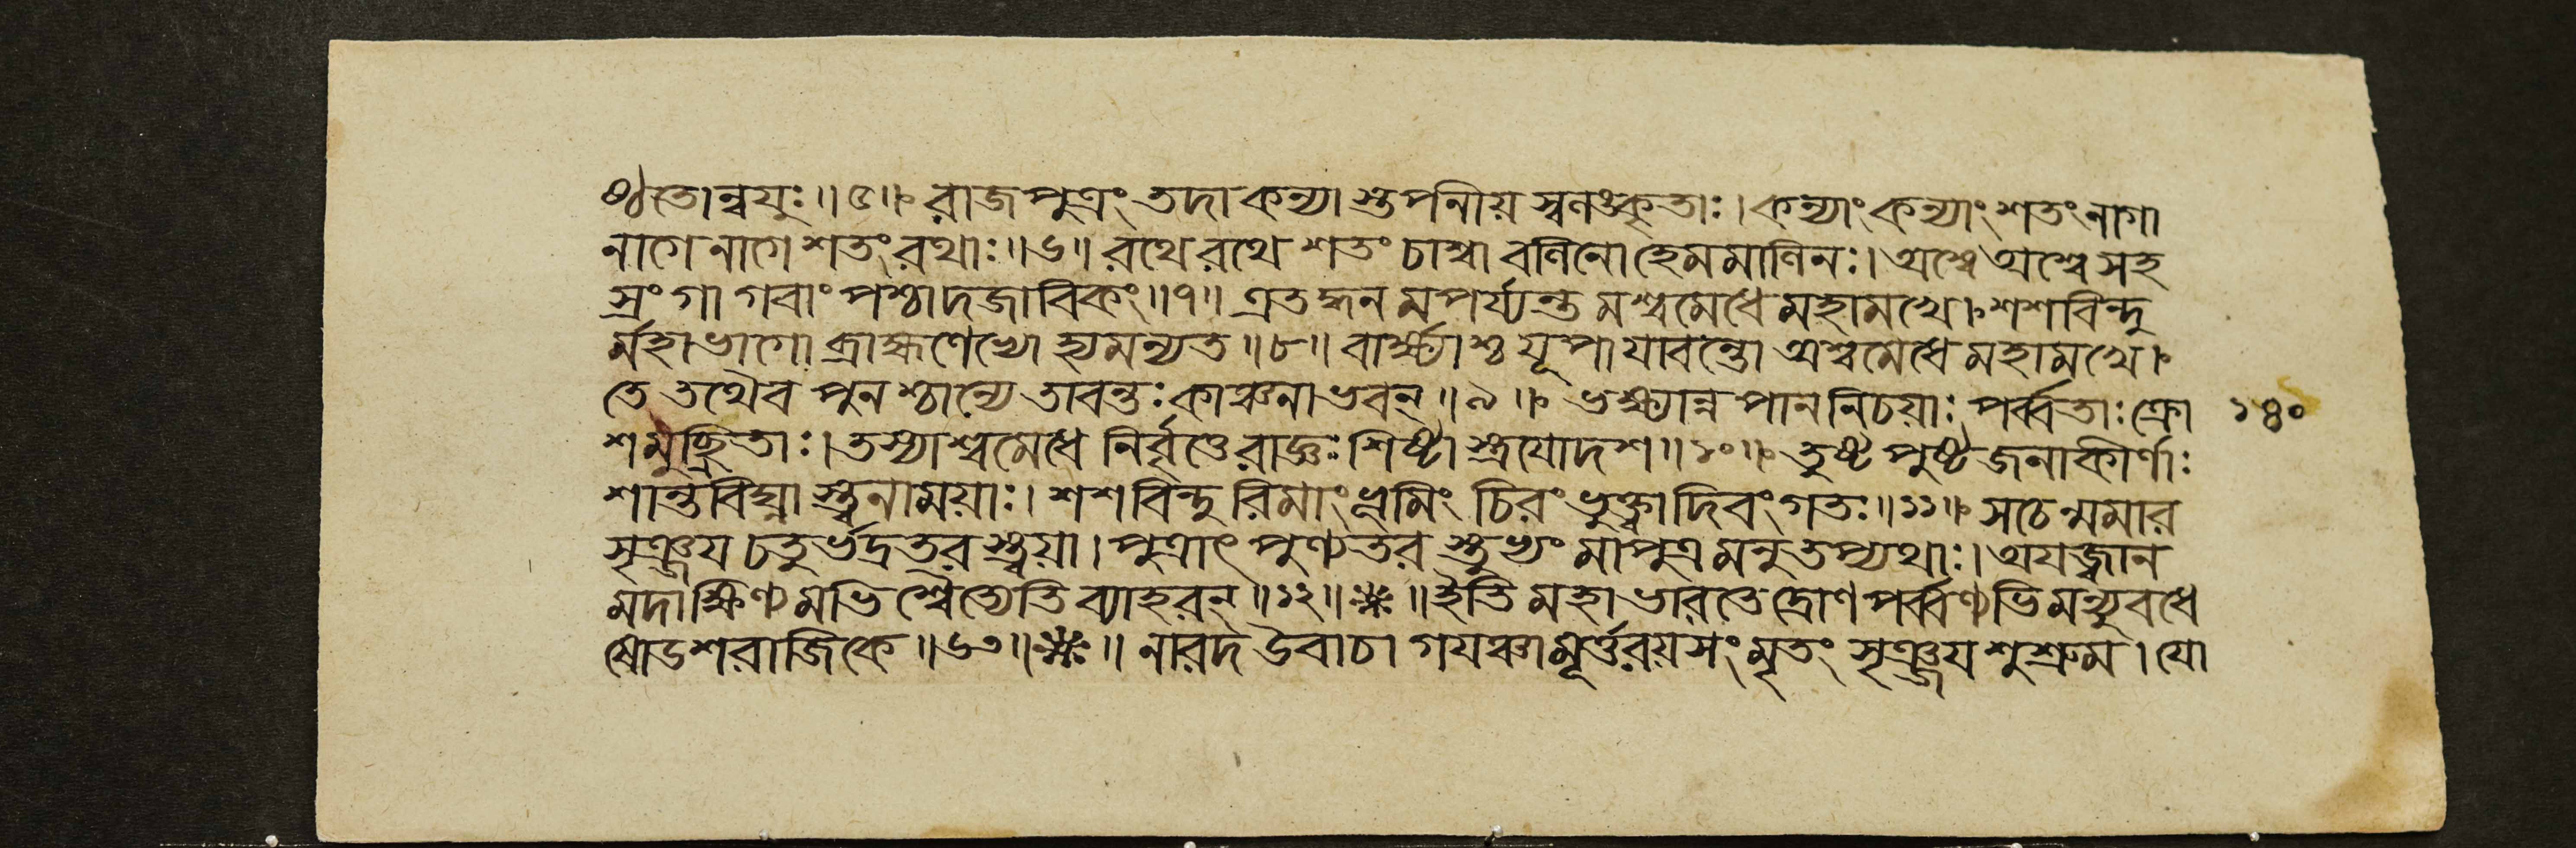 ণ্ঠতোন্বযুঃ॥৫॥ রাজপুত্রং তদা কন্যা স্তপনীয় স্বলঙ্কৃতাঃ। কন্যাং কন্যাং শতং নাগা
নাগে নাগে শতং রথাঃ॥৬॥ রথে রথে শতং চাশ্বা বলিনো হেমমালিনঃ। অশ্বে অশ্বে সহ
স্রং গা গবাং পশ্চাদজাবিকং॥৭॥ এতদ্ধনমপর্য্যন্তমশ্বমেধে মহামখে। শশবিন্দু
র্মহাভাগো ব্রাহ্মণেভ্যো হ্যমন্যত॥৮॥ বার্ক্ষ্যাশ্চ যূপা যাবন্তো অশ্বমেধে মহামখে।
তে তথৈব পুনশ্চান্যে তাবন্তঃ কাঞ্চনাভবন্॥৯॥ ভক্ষ্যান্ন পাননিচয়াঃ পর্ব্বতাঃ ক্রো ১৪০
শমুচ্ছ্রিতাঃ। তস্যাশ্বমেধে নির্বৃত্তে রাজ্ঞঃ শিষ্টা স্ত্রযোদশ॥১০॥ তুষ্ট পুষ্ট জনাকীর্ণাং
শান্তবিঘ্না স্ত্বনাময়াঃ। শশবিন্দু রিমাং ভূমিং চিরং ভুক্ত্বা দিবং গতঃ॥১১॥ স চেন্মমার
সৃঞ্জয চতুর্ভদ্রতর স্ত্বয়া। পুত্রাৎ পুণ্যতর স্তুভ্যং মা পুত্রমনুতপ্যথাঃ। অযজ্বান
মদাক্ষিণ্যমভি শ্বৈত্যেতি ব্যাহরন্॥১২॥ইতি মহাভারতে দ্রোণপর্ব্বণ্যভিমন্যুবধে
ষোডশরাজিকে॥৬৩॥ নারদ উবাচ। গযঞ্চামূর্ত্তরয়সং মৃতং সৃঞ্জয শুশ্রুম। যো